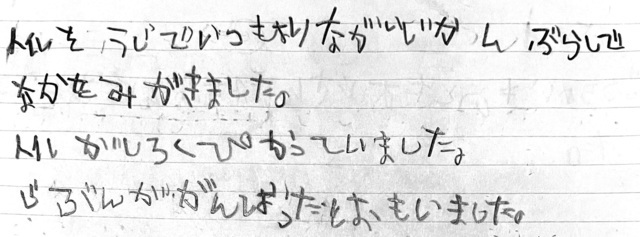 人ルを、うじでいつもよりながいじかん、ぶらしで
なかをみがきました。
人ルがしろくぴかっていました。
じぶんががんばったとおもいました。